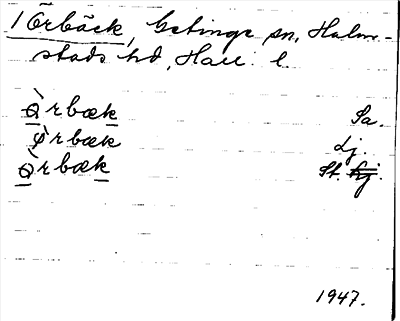 1 Örbäck, Getinge sn, Halm-
stads hd, Hall. l.
Ò̲rbæk̲ Sa.
ø̀rbæk Lj.
Ò̲rbæk̲ St.
1947.